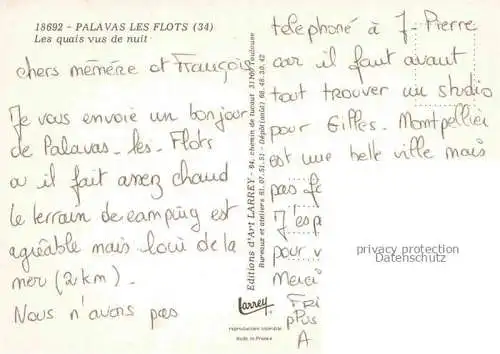 18692 - PALAVAS LES FLOTS (34)
Les quais vus de nuit
chers mémère et Françoise
Je vous envoie un bonjour
de Palavas-les-Flots
ou il fait assez chaud
le terrain de camping est
agréable mais loin de la
mer (2 km).
Nous n'avons pas
Editions d'Art LARREY - 64, chemin de tucaut 31100 Toulouse
Bureaux et ateliers 61.07.51.51 - Dépôt(onde) 68.48.30.42
Larrey
reproduction interdite
Made in France
téléphoné à J-Pierre
car il faut avant
tout trouver un studio
pour Gilles. Montpellier
est une belle ville mais
pas
J'esp
pour v
Merci
FRI
PPUS
A
privacy protection
Datenschutz